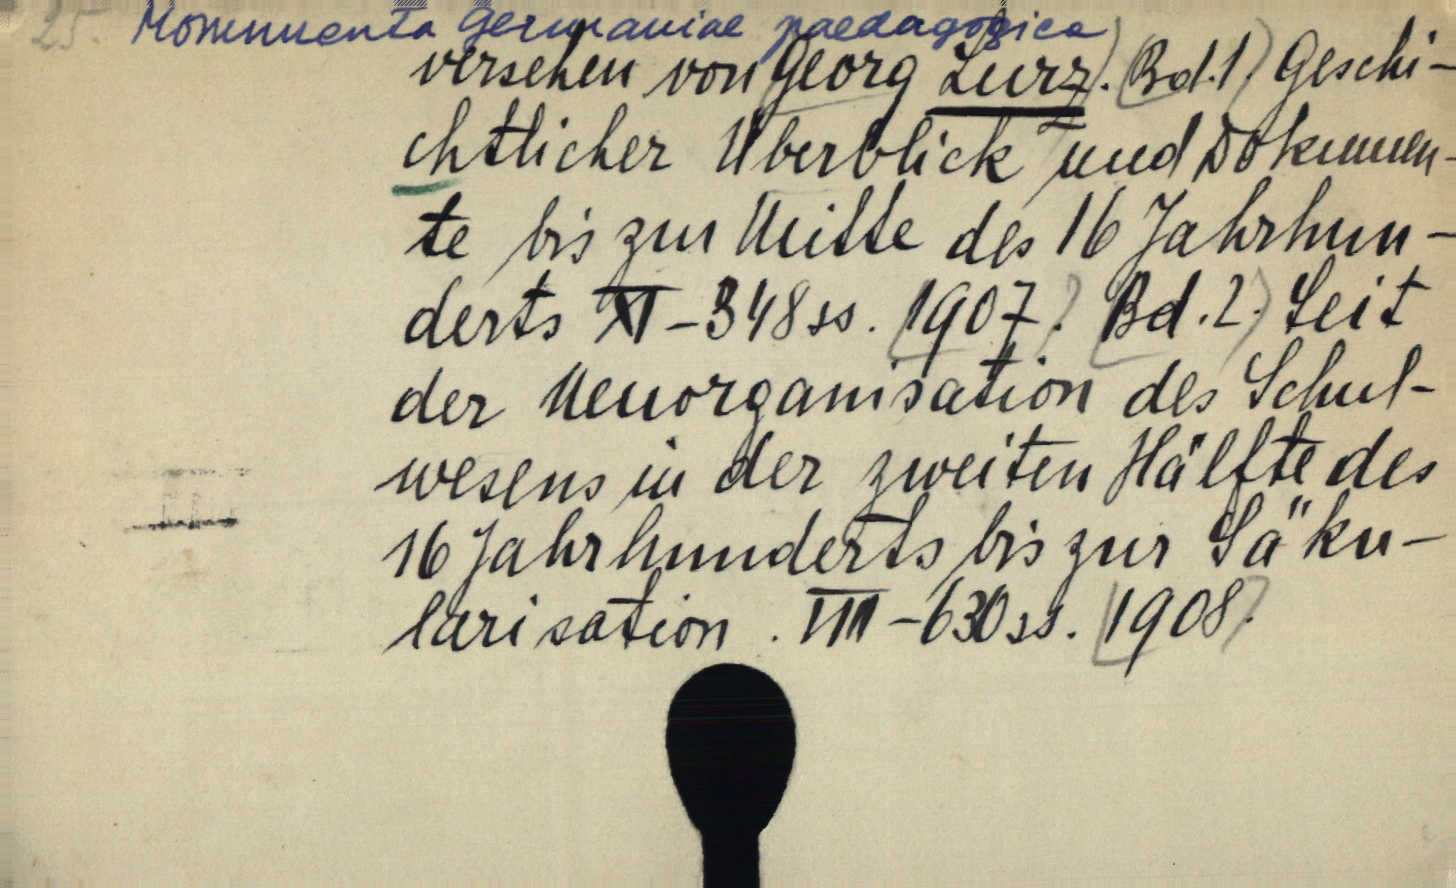 25. Monumenta Germaniae paedagogica
versehen von Georg Lurz). (Bd.1) Geschi-
chtlicher Überblick und Dokumen-
te bis zur Mitte des 16 Jahrhun-
derts XI-348 ss. [1907]. [Bd.2.) Seit
der Neuorganisation des Schul-
wesens in der zweiten Hälfte des
16 Jahrhunderts bis zur Säku-
larisation. VIII-630 ss. [1908].